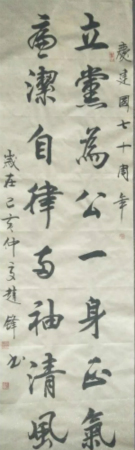 慶建國七十周年
立黨為公一身正氣
廉潔自律兩袖清風
歲在己亥仲夏趙鋒书